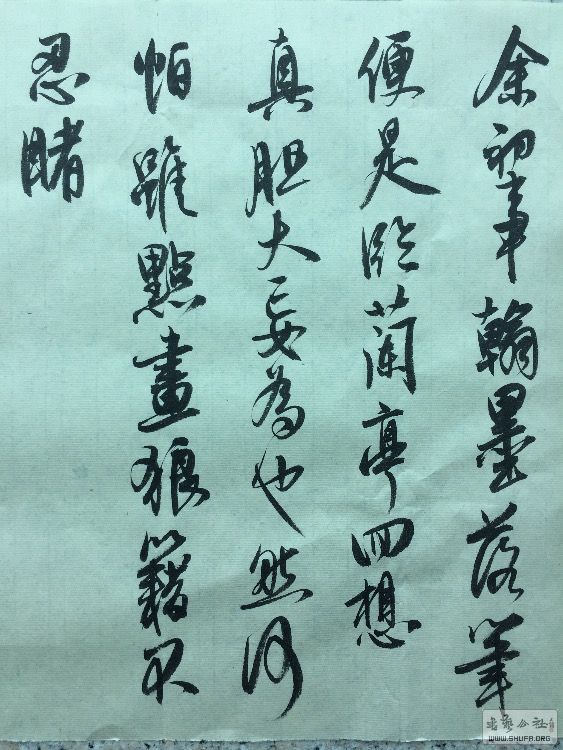 余初事翰墨落筆
便是临蘭亭回想
真胆大妄為也然何
怕雖點畫狼籍不
忍睹
书艺公社
WWW.SHUFA.ORG